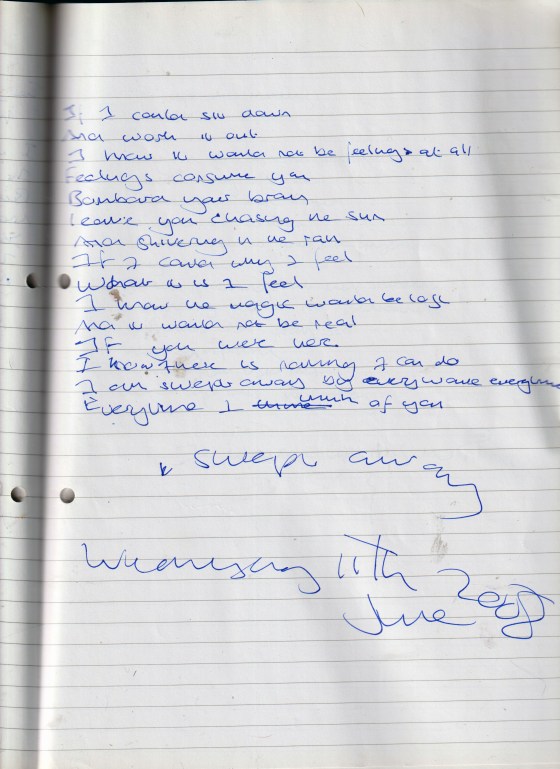 If I could sit down
And work it out
I know it would not be feelings at all
Feelings consume you
Bombard your brain
Leave you chasing the sun
And shivering in the rain
If I could why I feel
What it is I feel
I know the magic would be lost
And it would not be real
If you were here
I know there is nothing I can do
I am swept away by every wave everytime
Everytime I think of you
swept away
Wednesday 11th
June 2008